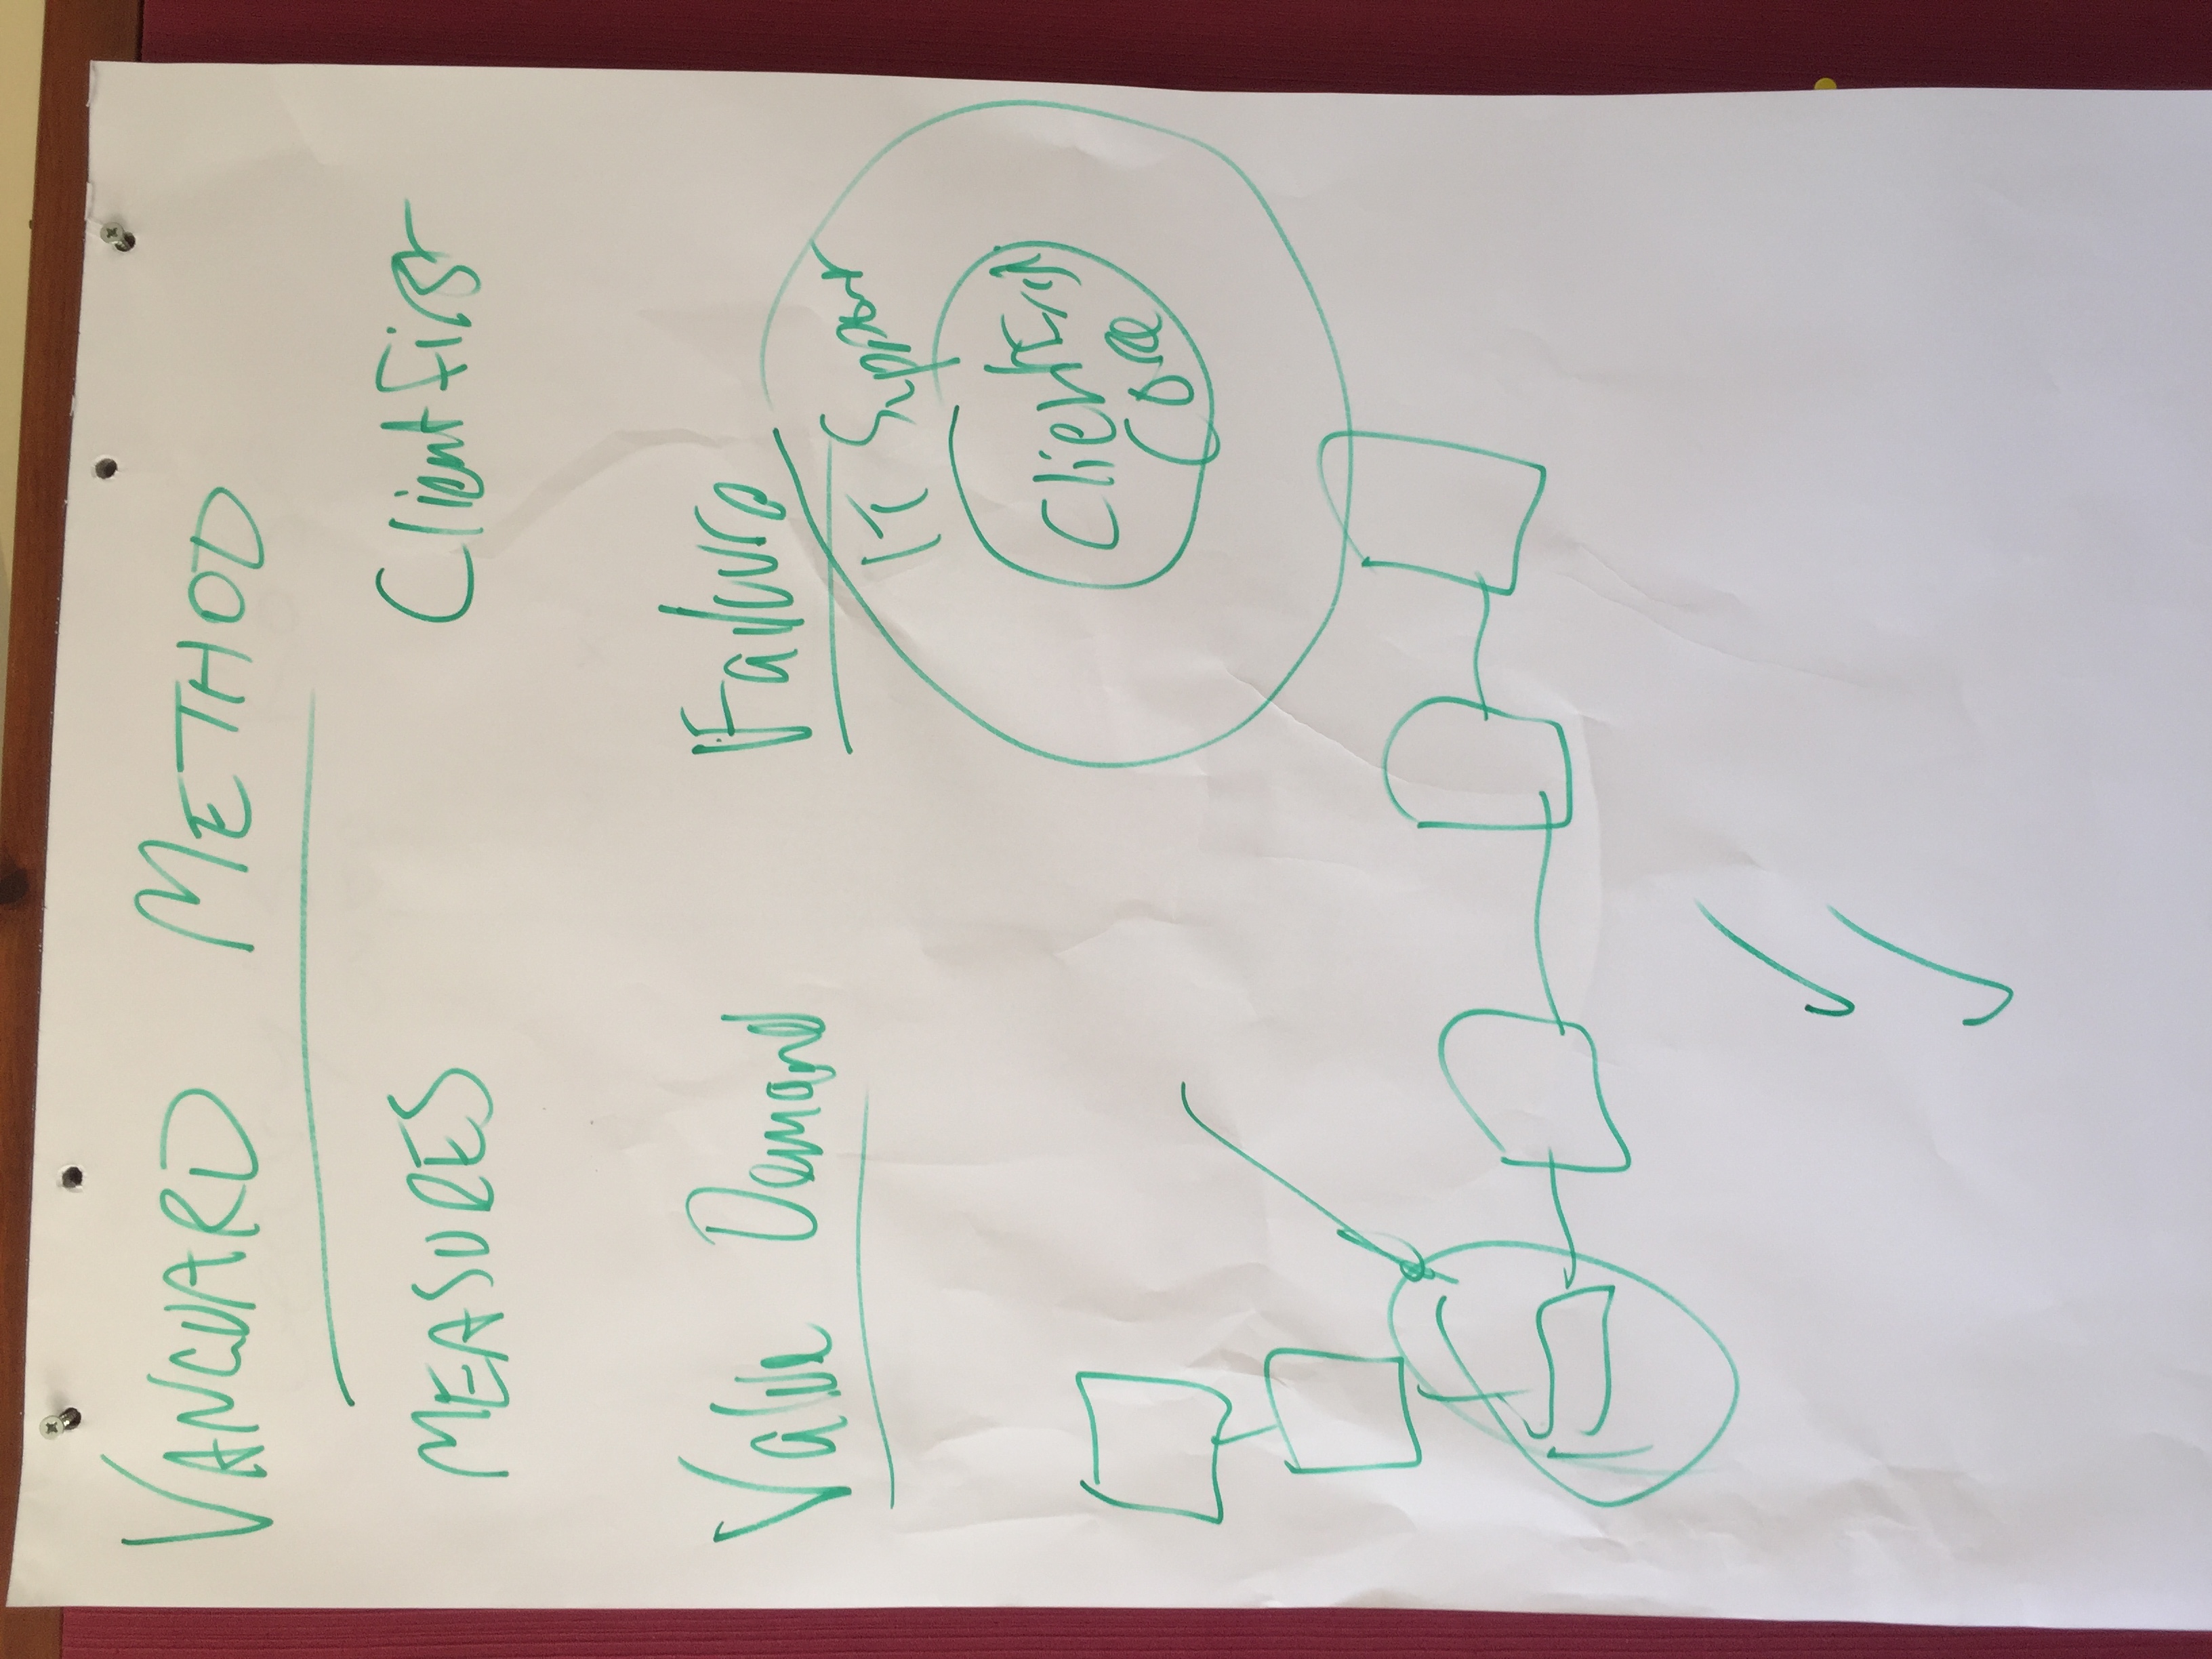 VANGUARD METHOD
MEASURES
Client First
Value Demand
Failure
IT Support
Client
Core